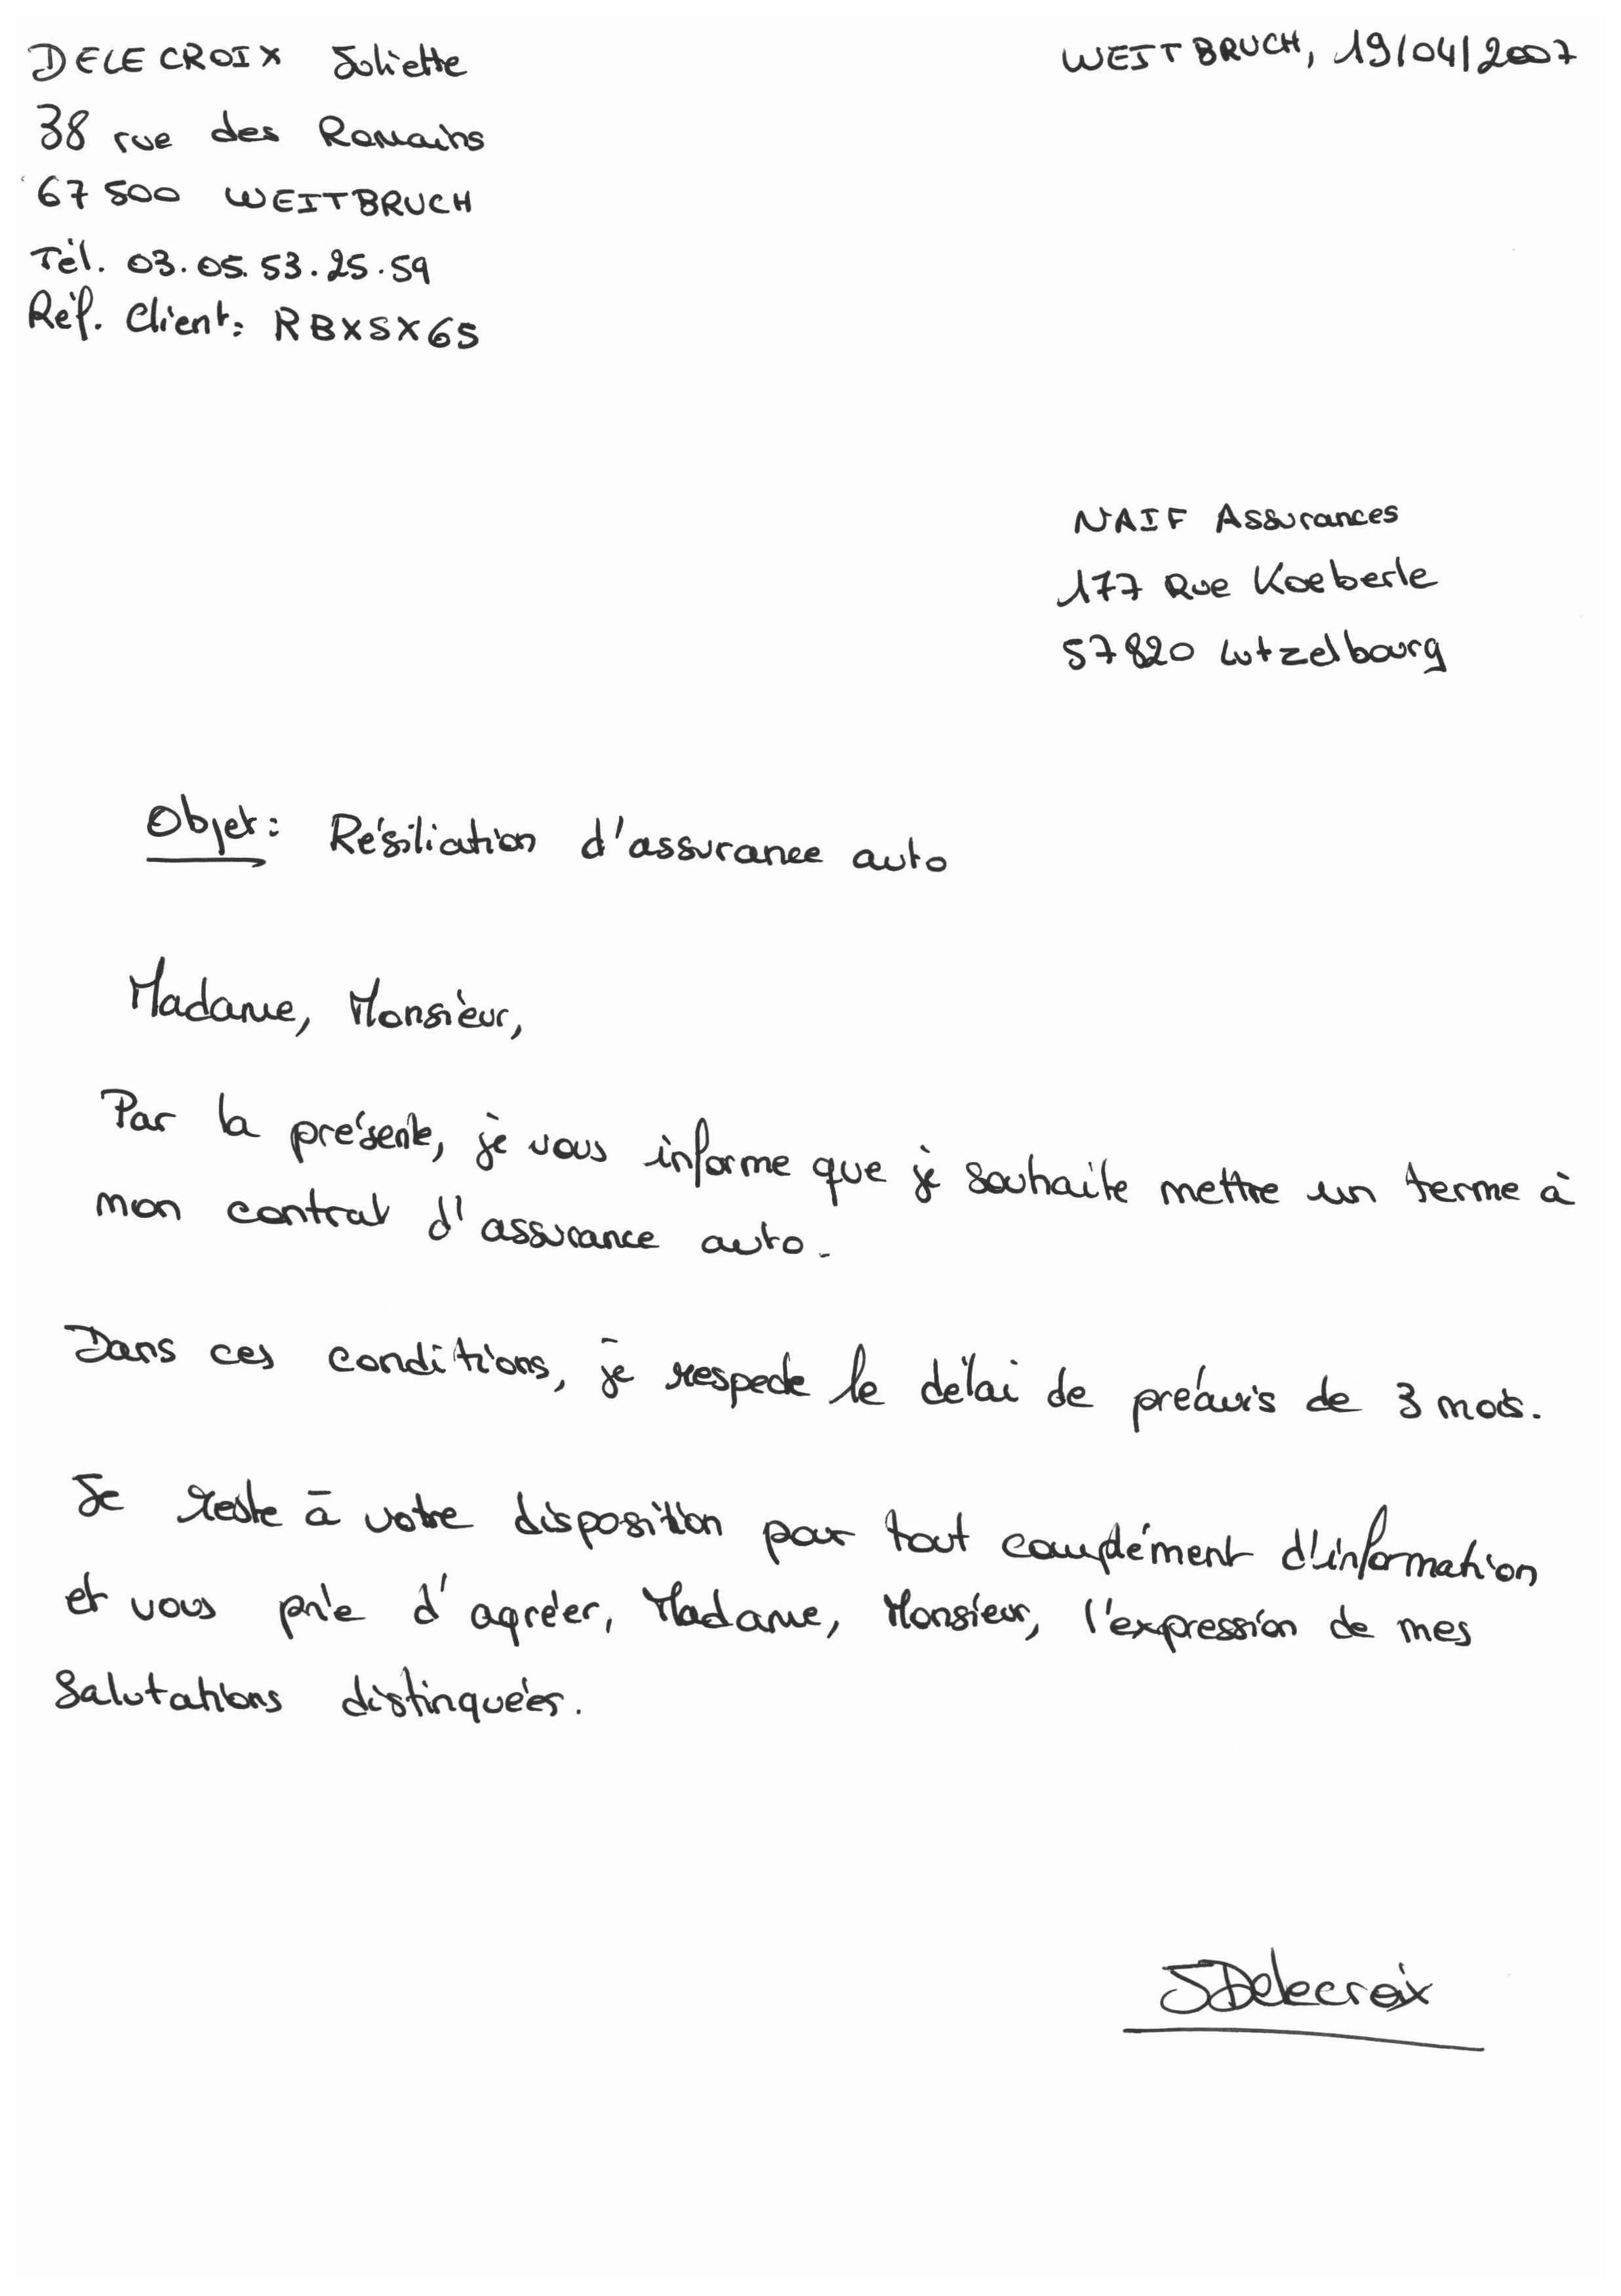 DELECROIX Juliette
WEITBRUCH, 19/04/2007
38 rue des Romains
67500 WEITBRUCH
Tél. 03.05.53.25.59
Réf. Client: RBXSX65
NAIF Assurances
177 Rue Koeberle
57820 Lutzelbourg
Objet: Résiliation d'assurance auto
Madame, Monsieur,
Par la présente, je vous informe que je souhaite mettre un terme à
mon contrat d'assurance auto.
Dans ces conditions, je respecte le délai de préavis de 3 mois.
Je reste à votre disposition pour tout complément d'information
et vous prie d'agréer, Madame, Monsieur, l'expression de mes
Salutations distinguées.
JDelecroix